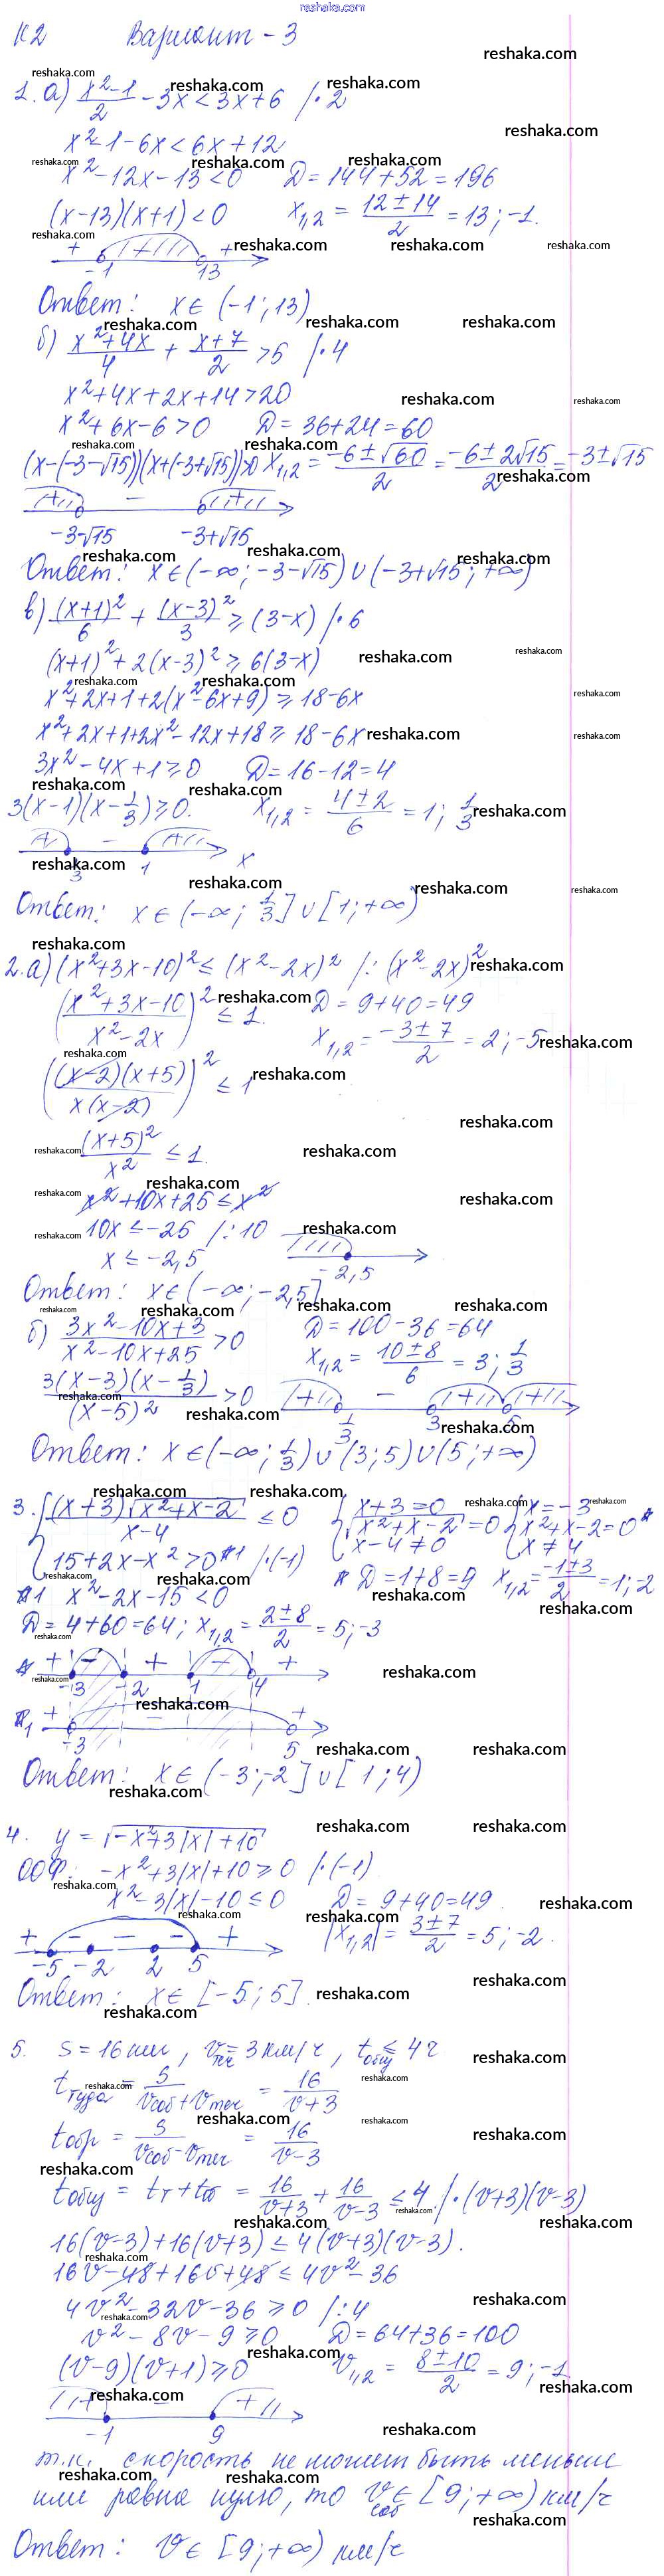 reshaka.com
К2 Вариант - 3
1. а) (x²-1)/2 - 3x < 3x+6 /·2
x²-1-6x < 6x+12
x²-12x-13 < 0 D = 144+52 = 196
(x-13)(x+1) < 0 x₁,₂ = (12±14)/2 = 13; -1.
+ - +
-1 13
Ответ: x ∈ (-1; 13)
б) (x²+4x)/4 + (x+7)/2 > 5 /·4
x²+4x+2x+14 > 20
x²+6x-6 > 0 D = 36+24 = 60
(x-(-3-√15))(x+(-3+√15))>0 x₁,₂ = (-6±√60)/2 = (-6±2√15)/2 = -3±√15
+ - +
-3-√15 -3+√15
Ответ: x ∈ (-∞; -3-√15) ∪ (-3+√15; +∞)
в) (x+1)²/6 + (x-3)²/3 ≥ (3-x) /·6
(x+1)² + 2(x-3)² ≥ 6(3-x)
x²+2x+1+2(x²-6x+9) ≥ 18-6x
x²+2x+1+2x²-12x+18 ≥ 18-6x
3x²-4x+1 ≥ 0 D = 16-12 = 4
3(x-1)(x-1/3) ≥ 0. x₁,₂ = (4±2)/6 = 1; 1/3
+ - +
1/3 1 x
Ответ: x ∈ (-∞; 1/3] ∪ [1; +∞)
2. а) (x²+3x-10)² ≤ (x²-2x)² /: (x²-2x)²
((x²+3x-10)/(x²-2x))² ≤ 1. D = 9+40 = 49
x₁,₂ = (-3±7)/2 = 2; -5
((x-2)(x+5)/(x(x-2)))² ≤ 1
(x+5)²/x² ≤ 1.
x²+10x+25 ≤ x²
10x ≤ -25 /:10
x ≤ -2,5
-2,5
Ответ: x ∈ (-∞; -2,5]
б) (3x²-10x+3)/(x²-10x+25) > 0 D = 100-36 = 64
x₁,₂ = (10±8)/6 = 3; 1/3
3(x-3)(x-1/3)/(x-5)² > 0
+ - + +
1/3 3 5
Ответ: x ∈ (-∞; 1/3) ∪ (3; 5) ∪ (5; +∞)
3. { (x+3)√(x²+x-2)/(x-4) ≤ 0 { x+3=0 { x=-3
√(x²+x-2)=0 x²+x-2=0*
x-4≠0 x≠4
15+2x-x² > 0 *1 /·(-1)
* D = 1+8 = 9 x₁,₂ = (-1±3)/2 = 1; -2
*1 x²-2x-15 < 0
D = 4+60 = 64; x₁,₂ = (2±8)/2 = 5; -3
* + - + - +
-3 -2 1 4
*1 + - +
-3 5
Ответ: x ∈ (-3; -2] ∪ [1; 4)
4. y = √(-x²+3|x|+10)
ООФ: -x²+3|x|+10 ≥ 0 /·(-1)
x²-3|x|-10 ≤ 0 D = 9+40 = 49.
|x₁,₂| = (3±7)/2 = 5; -2.
+ - - - +
-5 -2 2 5
Ответ: x ∈ [-5; 5].
5. S = 16 км, vтеч = 3 км/ч, tобщ ≤ 4 ч
tтуда = S/(vсоб+vтеч) = 16/(v+3)
tобр = S/(vсоб-vтеч) = 16/(v-3)
tобщ = tт + tоб = 16/(v+3) + 16/(v-3) ≤ 4 /·(v+3)(v-3)
16(v-3)+16(v+3) ≤ 4(v+3)(v-3).
16v-48+16v+48 ≤ 4v²-36
4v²-32v-36 ≥ 0 /:4
v²-8v-9 ≥ 0 D = 64+36 = 100
(v-9)(v+1) ≥ 0 v₁,₂ = (8±10)/2 = 9; -1.
+ - +
-1 9
т.к. скорость не может быть меньше
или равна нулю, то vсоб ∈ [9; +∞) км/ч
Ответ: v ∈ [9; +∞) км/ч